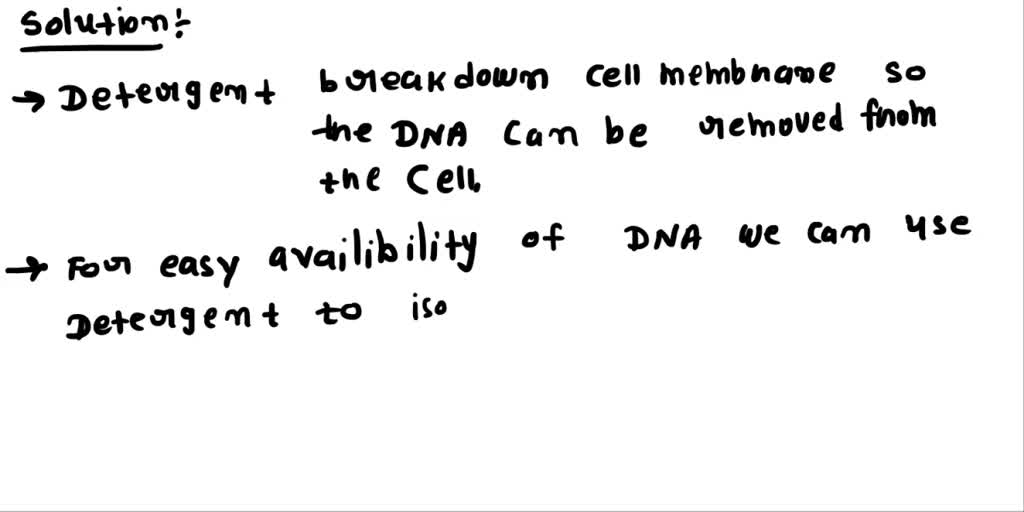 Solution :-
→ Detergent breakdown cell membrane so
the DNA can be removed from
the cell.
→ For easy availibility of DNA we can use
Detergent to iso